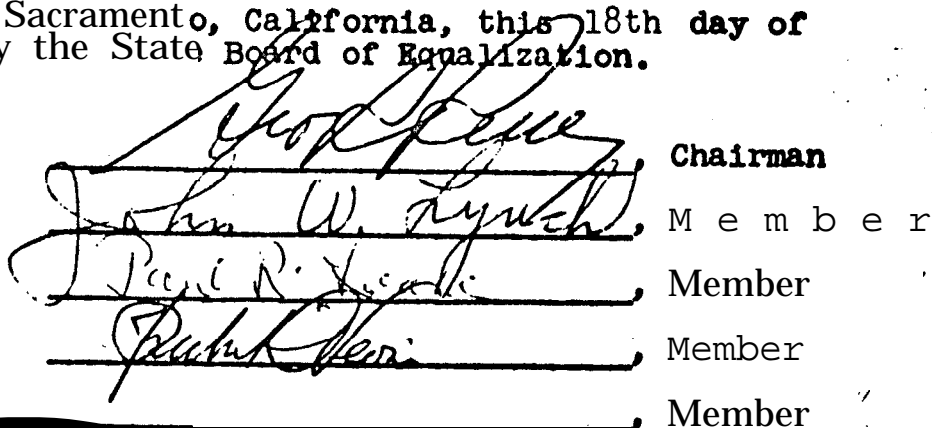 Sacramento, California, this 18th day of
y the State Board of Equalization.
, Chairman
John W. Lynch, Member
Paul R. , Member
, Member
, Member